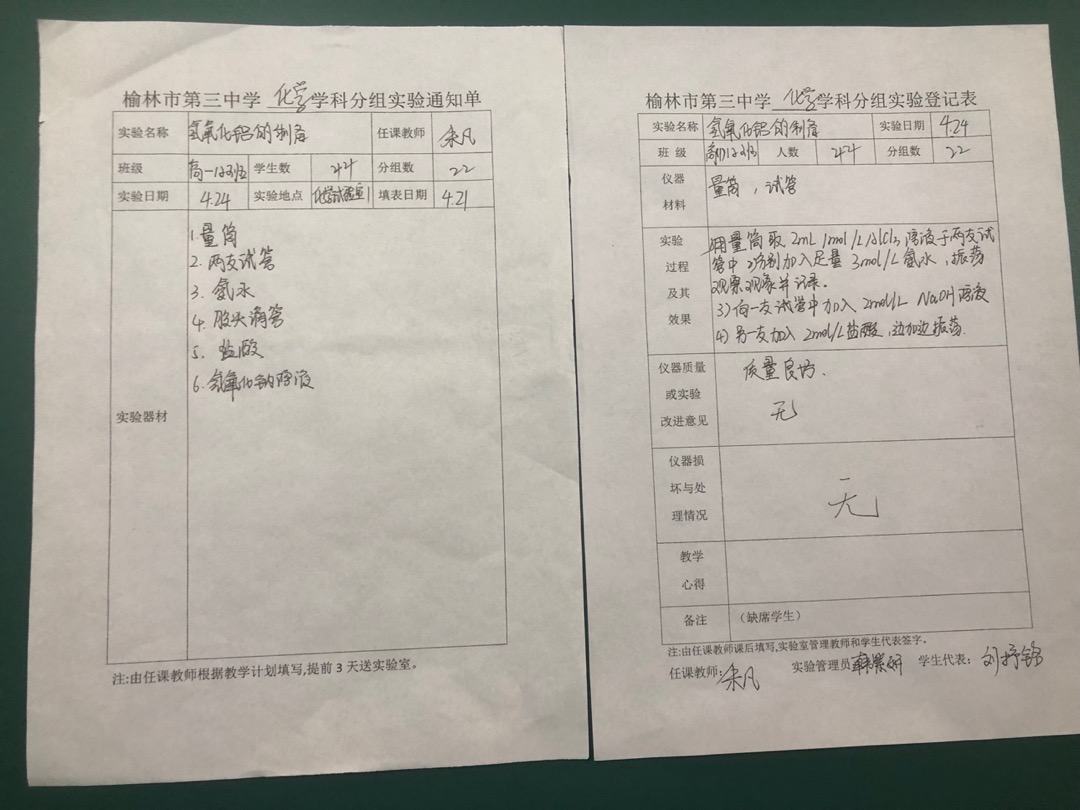 榆林市第三中学 化学 学科分组实验通知单
实验名称 氢氧化铝的制备 任课教师 朱凡
班级 高一1223班 学生数 44 分组数 22
实验日期 4.24 实验地点 化学试验室1 填表日期 4.21
实验器材
1.量筒
2.两支试管
3.氨水
4.胶头滴管
5.盐酸
6.氢氧化钠溶液
注:由任课教师根据教学计划填写,提前3天送实验室。
榆林市第三中学 化学 学科分组实验登记表
实验名称 氢氧化铝的制备 实验日期 4.24
班级 人数 44 分组数 22
仪器材料 量筒,试管
实验过程及其效果
用量筒取 2mL 1mol/L AlCl3 溶液于两支试
管中 2)分别加入足量 3mol/L 氨水,振荡
观察现象并记录。
3)向一支试管中加入 2mol/L NaOH 溶液
4)另一支加入 2mol/L 盐酸,边加边振荡.
仪器质量或实验改进意见 质量良好.
无
仪器损坏与处理情况 无
教学心得
备注 (缺席学生)
注:由任课教师课后填写,实验室管理教师和学生代表签字。
任课教师: 朱凡 实验管理员 学生代表: